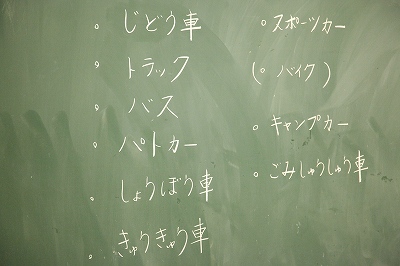 。じどう車
。トラック
。バス
。パトカー
。しょうぼう車
。きゅうきゅう車
。スポーツカー
(。バイク)
。キャンプカー
。ごみしゅうしゅう車